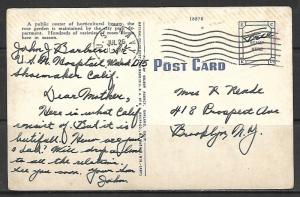 A public center of horticultural beauty, the
rose garden is maintained by the city park de-
partment. Hundreds of varieties of roses bloom
here in season.
18878
John J Barbour
U.S.N. Hospital Ward D15
Shoemaker Calif.
POST CARD
Free
Dear Mother,
Here is what Calif
consist of. But it is
butifull. How are you
+ dad? Will drop a line
to see the relation.
See you soon. Your Son
John
Mrs R Reade
418 Prospect Ave
Brooklyn N.Y.